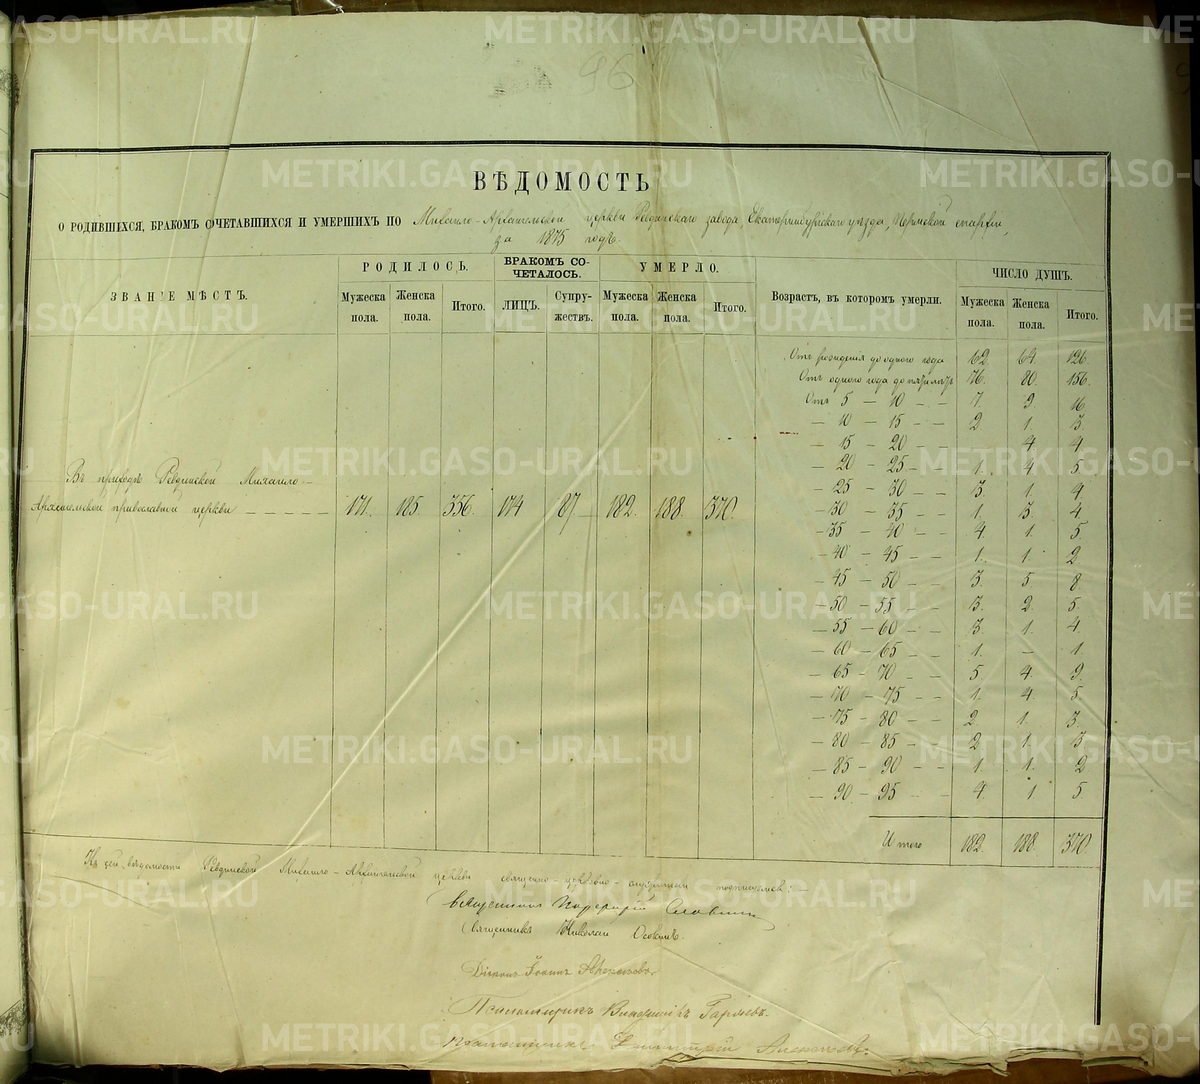 METRIKI.GASO-URAL.RU
96
ВѢДОМОСТЬ
О РОДИВШИХСЯ, БРАКОМЪ СОЧЕТАВШИХСЯ И УМЕРШИХЪ ПО Михаило-Архангельской церкви Ревдинскаго завода, Екатеринбургскаго уѣзда, Пермской епархіи,
за 1875 годъ.
ЗВАНІЕ МѢСТЪ. РОДИЛОСЬ. БРАКОМЪ СОЧЕТАЛОСЬ. УМЕРЛО. Возрастъ, въ которомъ умерли. ЧИСЛО ДУШЪ.
Мужеска пола. Женска пола. Итого. ЛИЦЪ. Супружествъ. Мужеска пола. Женска пола. Итого. Мужеска пола. Женска пола. Итого.
Отъ рожденія до одного года 62. 64. 126.
Отъ одного года до пяти лѣтъ 76. 80. 156.
Отъ 5 — 10 — — 7. 9. 16
— 10 — 15 — — 2. 1. 3.
— 15 — 20 — — 4 4
— 20 — 25 — — 1. 4 5.
— 25 — 30 — — 3. 1. 4.
— 30 — 35 — — 1. 3. 4
— 35 — 40 — — 4. 1. 5.
— 40 — 45 — — 1. 1. 2.
— 45 — 50 — — 3. 5. 8
— 50 — 55 — — 3. 2. 5.
— 55 — 60 — — 3. 1. 4
— 60 — 65 — — 1. — 1.
— 65 — 70 — — 5. 4. 9.
— 70 — 75 — — 1. 4. 5.
— 75 — 80 — — 2. 1. 3.
— 80 — 85 — — 2 1. 3
— 85 — 90 — — 1. 1. 2
— 90 — 95 — — 4. 1 5.
Въ приходѣ Ревдинской Михаило-
Архангельской православной церкви — — — — — 171. 185. 356. 174 87 182. 188. 370.
Итого 182. 188. 370
Къ сей вѣдомости Ревдинской Михаило-Архангельской церкви священно-церковно-служители подписались:—
Священникъ Славнинъ
Священникъ Николай
Діаконъ Іоаннъ
Псаломщикъ
Псаломщикъ Димитрій